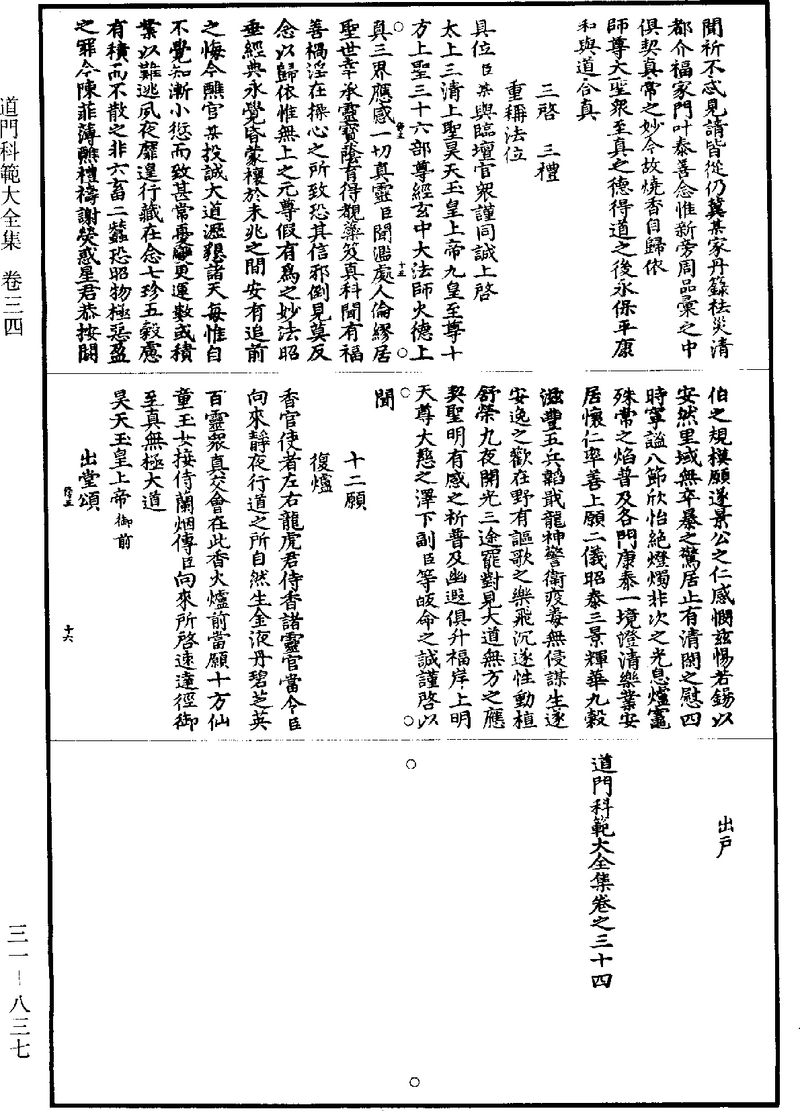 道門科範大全集　卷三四
三一—八三七
聞祈不忒見請皆從仍冀某家丹籙袪災清
都介福家門叶泰善念惟新旁周品彙之中
俱契真常之妙今故燒香自歸依
師尊大聖衆至真之德得道之後永保平康
和與道合真
三啓　三禮
重稱法位
具位臣某與臨壇官衆謹同誠上啓
太上三清上聖昊天玉皇上帝九皇至尊十
方上聖三十六部尊經玄中大法師火德上
真三界應感一切真靈臣聞濫處人倫繆居
十五
聖世幸承靈寶蔭有得覩藥笈真科聞有福
善禍淫在操心之所致恐其信邪倒見莫反
念以歸依惟無上之元尊假有為之妙法昭
垂經典永覺昏蒙禳於未兆之間安有追前
之悔今醮官某投誠大道瀝懇諸天每惟自
不覺知漸小愆而致甚常更運數或積
業以難逃夙夜靡遑行藏在念七珍五穀慮
有積而不散之非六畜二蠶恐昭物極惡盈
之罪今陳菲薄醮禮禱謝熒惑星君恭按閼
伯之規模願遂景公之仁感憫茲惕若錫以
安然里域無卒暴之驚居止有清閑之慰四
時寧謐八節欣怡絶燈燭非次之光息爐竈
殊常之焰普及各門康泰一境澄清樂業安
居懷仁率善上願二儀昭泰三景輝華九穀
滋豐五兵韜戢龍神警衛疫毒無侵謀生遂
安逸之歡在野有謳歌之樂飛沉遂性動植
舒榮九夜開光三途罷對見大道無方之應
契聖明有感之祈普及幽遐俱升福岸上明
天尊大慈之澤下副臣等皈命之誠謹啓以
聞
十二願
復爐
香官使者左右龍虎君侍香諸靈官當今臣
向來靜夜行道之所自然生金液丹碧芝英
百靈衆真交會在此香火爐前當願十方仙
童玉女接侍蘭烟傳臣向來所啓速達徑御
至真無極大道
昊天玉皇上帝御前
出堂頌
十六
出戶
道門科範大全集卷之三十四